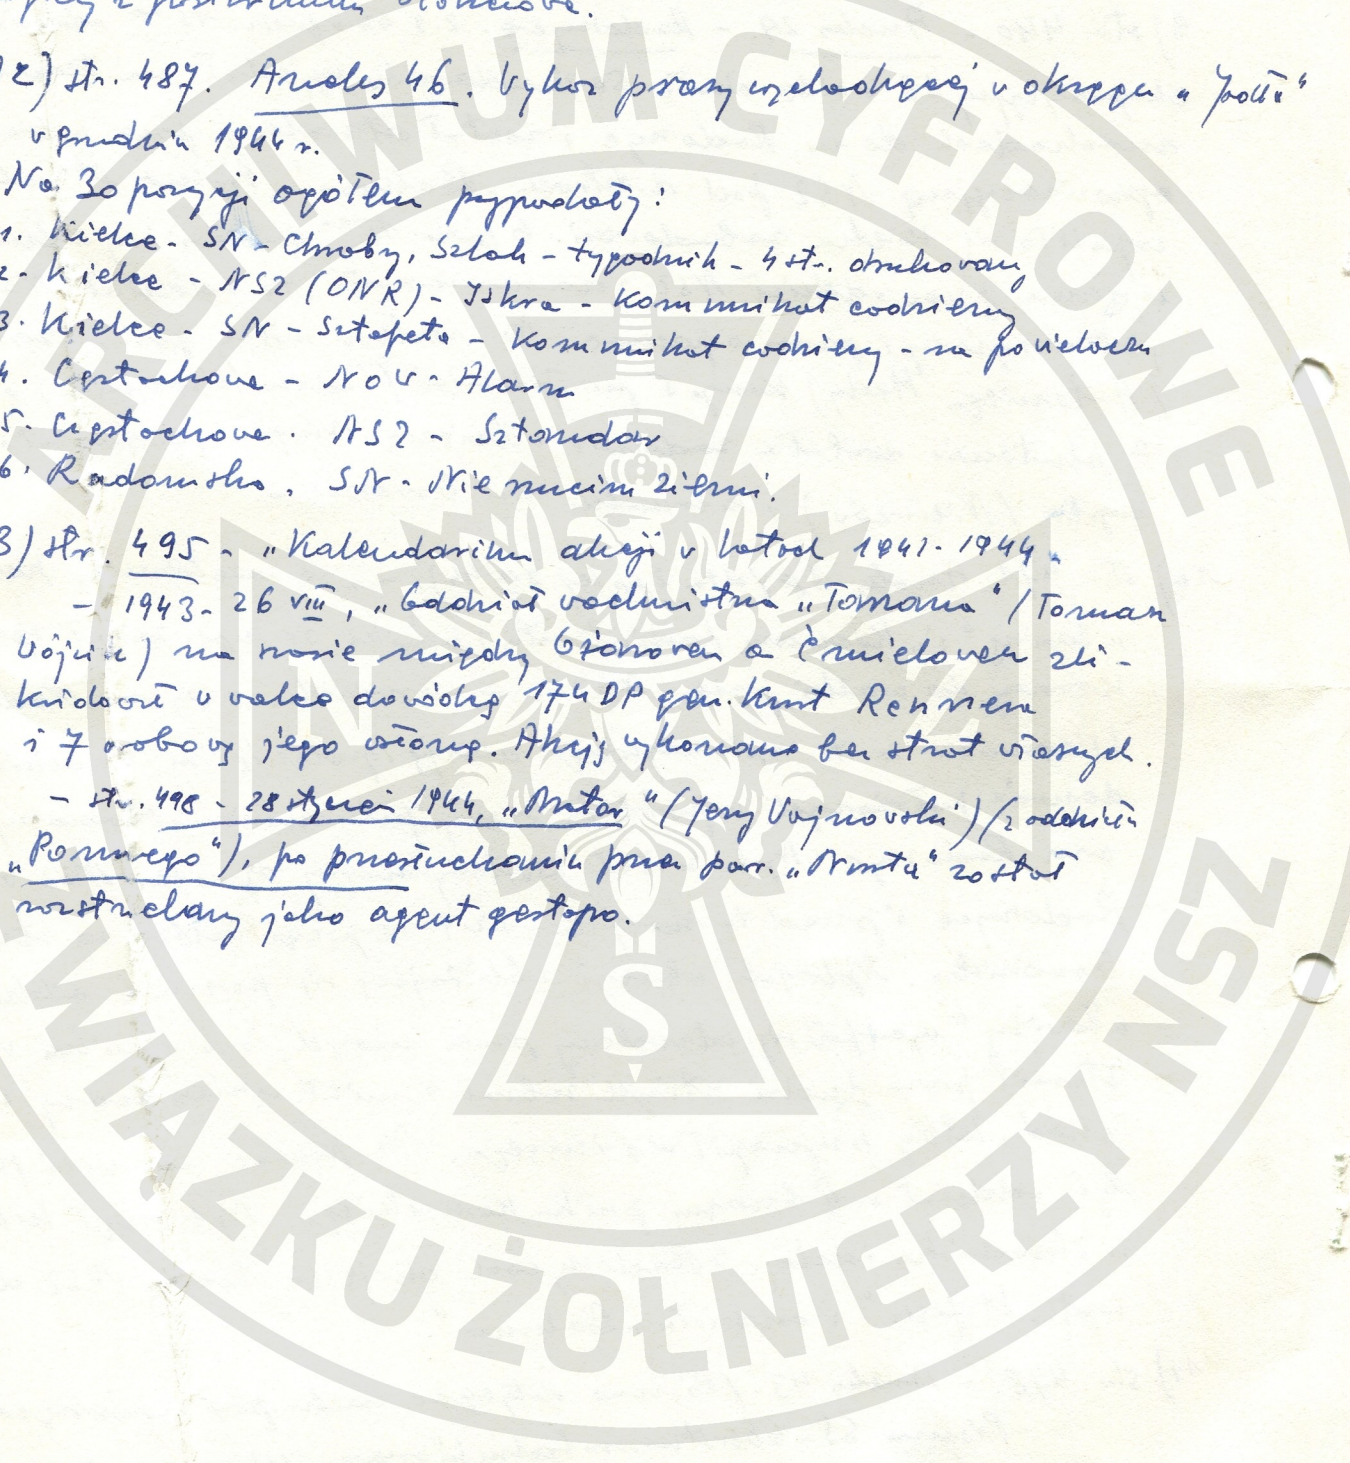 2) str. 487. Aneks 46. Wykaz prasy wychodzącej w okręgu "Jodła"
w grudniu 1944 r.
Na 30 pozycji ogółem przypadały:
1. Kielce - SN - Chrobry, Szlak - tygodnik - 4 str. drukowany
2. Kielce - NSZ (ONR) - Iskra - Komunikat codzienny
3. Kielce - SN - Sztafeta - Komunikat codzienny - na powielaczu
4. Częstochowa - NOW - Alarm
5. Częstochowa. NSZ - Sztandar
6. Radomsko. SN - Nie rzucim ziemi.
3) str. 495 - "Kalendarium akcji w latach 1942-1944
- 1943 - 26 VIII, "Oddział wachmistrza "Tarzana" (Tomasz
Wójcik) na szosie między Ożarowem a Ćmielowem zli-
kwidował w walce dowódcę 174 DP gen. Kurt Rennera
i 7 osobową jego osłonę. Akcję wykonano bez strat własnych.
- str. 498 - 28 styczeń 1944, "Motor" (Jerzy Wojnowski) (z oddziału
"Ponurego"), po przesłuchaniu przez por. "Nurta" został
rozstrzelany jako agent gestapo.
ARCHIWUM CYFROWE
ZWIĄZKU ŻOŁNIERZY NSZ
N
S